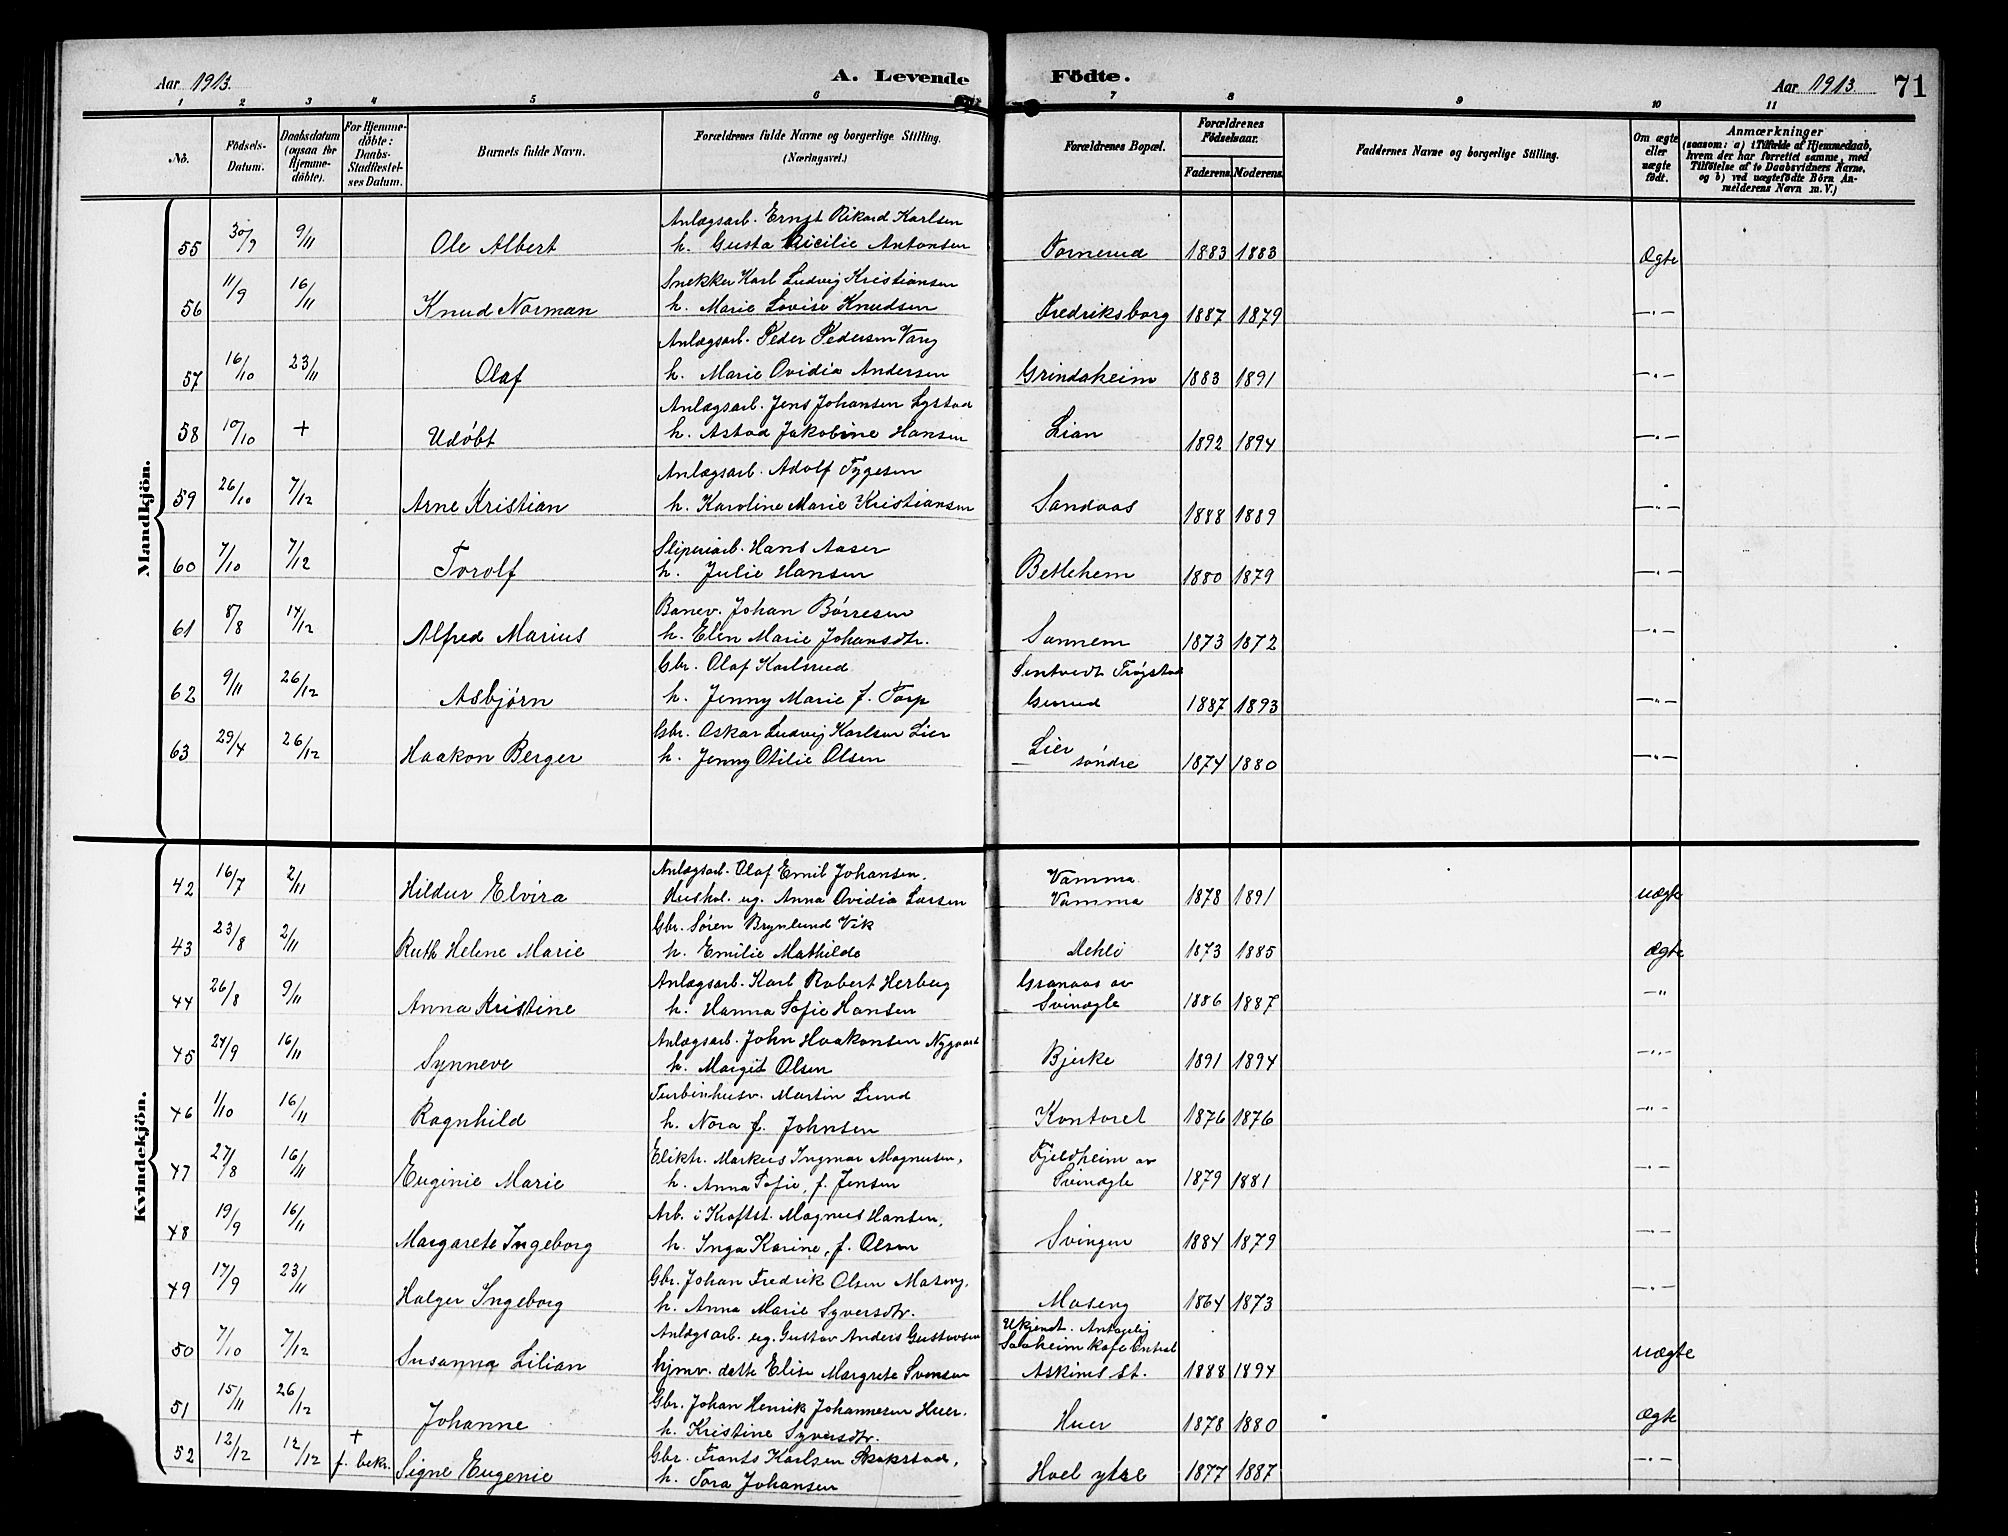 Aar 1913. A. Levende Födte. Aar 1913. 71
1 2 3 4 5 6 7 8 9 10 11
No. Födsels-Datum. Daabsdatum (ogsaa for Hjemmedöbte). For Hjemmedöbte: Daabs-Stadfæstelses Datum. Barnets fulde Navn. Forældrenes fulde Navne og borgerlige Stilling. (Næringsvei.) Forældrenes Bopæl. Forældrenes Födselsaar. Faderens. Moderens. Faddernes Navne og borgerlige Stilling. Om ægte eller uægte födt. Anmærkninger (saasom: a) i Tilfælde af Hjemmedaab, hvem der har forrettet samme, med Tilföielse af to Daabsvidners Navne, og b) ved uægtefödte Börn Anmelderens Navn m. V.)
Mandkjön.
55 30/9 9/11 Ole Albert Anlægsarb. Ernst Rikard Karlsen
h. Gusta Cicilie Antonsen Tornerud 1883 1883 Ægte
56 11/9 16/11 Knud Norman Snekker Karl Ludvig Kristiansen
h. Marie Lovise Knudsen Fredriksborg 1887 1879 —"—
57 16/10 23/11 Olaf Anlægsarb. Peder Pedersen Varg
h. Marie Ovidia Andersen Grindaheim 1883 1891 —"—
58 10/10 + Udøbt Anlægsarb. Jens Johansen Lystad
h. Astad Jakobine Hansen Lian 1892 1894 —"—
59 26/10 7/12 Arne Kristian Anlægsarb. Adolf Tygesen
h. Karoline Marie Kristiansen Sandaas 1888 1889 —"—
60 7/10 7/12 Torolf Sliperiarb. Hans Aaser
h. Julie Hansen Betlehem 1880 1879 —"—
61 8/8 14/12 Alfred Marius Banev. Johan Børresen
h. Elen Marie Johansdtr. Sannem 1873 1872 —"—
62 9/11 26/12 Asbjørn Gbr. Olaf Karlsrud
h. Jenny Marie f. Torp Sentvedt Trøgstad 1887 1893 —"—
63 29/4 26/12 Haakon Berger Gbr. Oskar Ludvig Karlsen Lier
h. Jenny Otilie Olsen Lier søndre 1874 1880 —"—
Kvindekjön.
42 16/7 2/11 Hildur Elvira Anlægsarb. Olaf Emil Johansen,
Hushol. ug. Anna Ovidia Larsen Vamma Vamma 1878 1891 uægte
43 23/8 2/11 Ruth Helene Marie Gbr. Søren Brynlund Vik
h. Emilie Mathilde Mehli 1873 1885 Ægte
44 26/8 9/11 Anna Kristine Anlægsarb. Karl Robert Herberg
h. Hanna Sofie Hansen Granaas av Svinægle 1886 1887 —"
45 24/9 16/11 Synneve Anlægsarb. John Haakonsen Nygaard
h. Margit Olsen Bjerke 1891 1894 —"—
46 1/10 16/11 Ragnhild Turbinhusv. Martin Lund
h. Nora f. Johnsen Kontoret 1876 1876 —"—
47 27/8 16/11 Euginie Marie Elektr. Markus Ingmar Magnusen,
h. Anna Sofie, f. Jensen Fjeldheim av Svinægle 1879 1881 —"—
48 19/9 16/11 Margarete Ingeborg Arb. i Kraftst. Magnus Hansen,
h. Inga Karine, f. Olsen Svingen 1884 1879 —"—
49 17/9 23/11 Halger Ingeborg Gbr. Johan Fredrik Olsen Maseng,
h. Anna Marie Syversdtr. Maseng 1864 1873 —"—
50 7/10 7/12 Susanna Lilian Anlægsarb. ug. Gustav Anders Gustavsen
hjmv. datte Elise Margrete Svensen Ukjendt. Antagelig Saaheim Kafe Central Askims st. 1888 1894 uægte
51 15/11 26/12 Johanne Gbr. Johan Henrik Johannesen Huer.
h. Kristine Syversdtr. Huer 1878 1880 Ægte
52 12/12 12/12 + f. bekr. Signe Eugenie Gbr. Frants Karlsen
h. Tora Johansen Hoel ytre 1877 1887 —"—